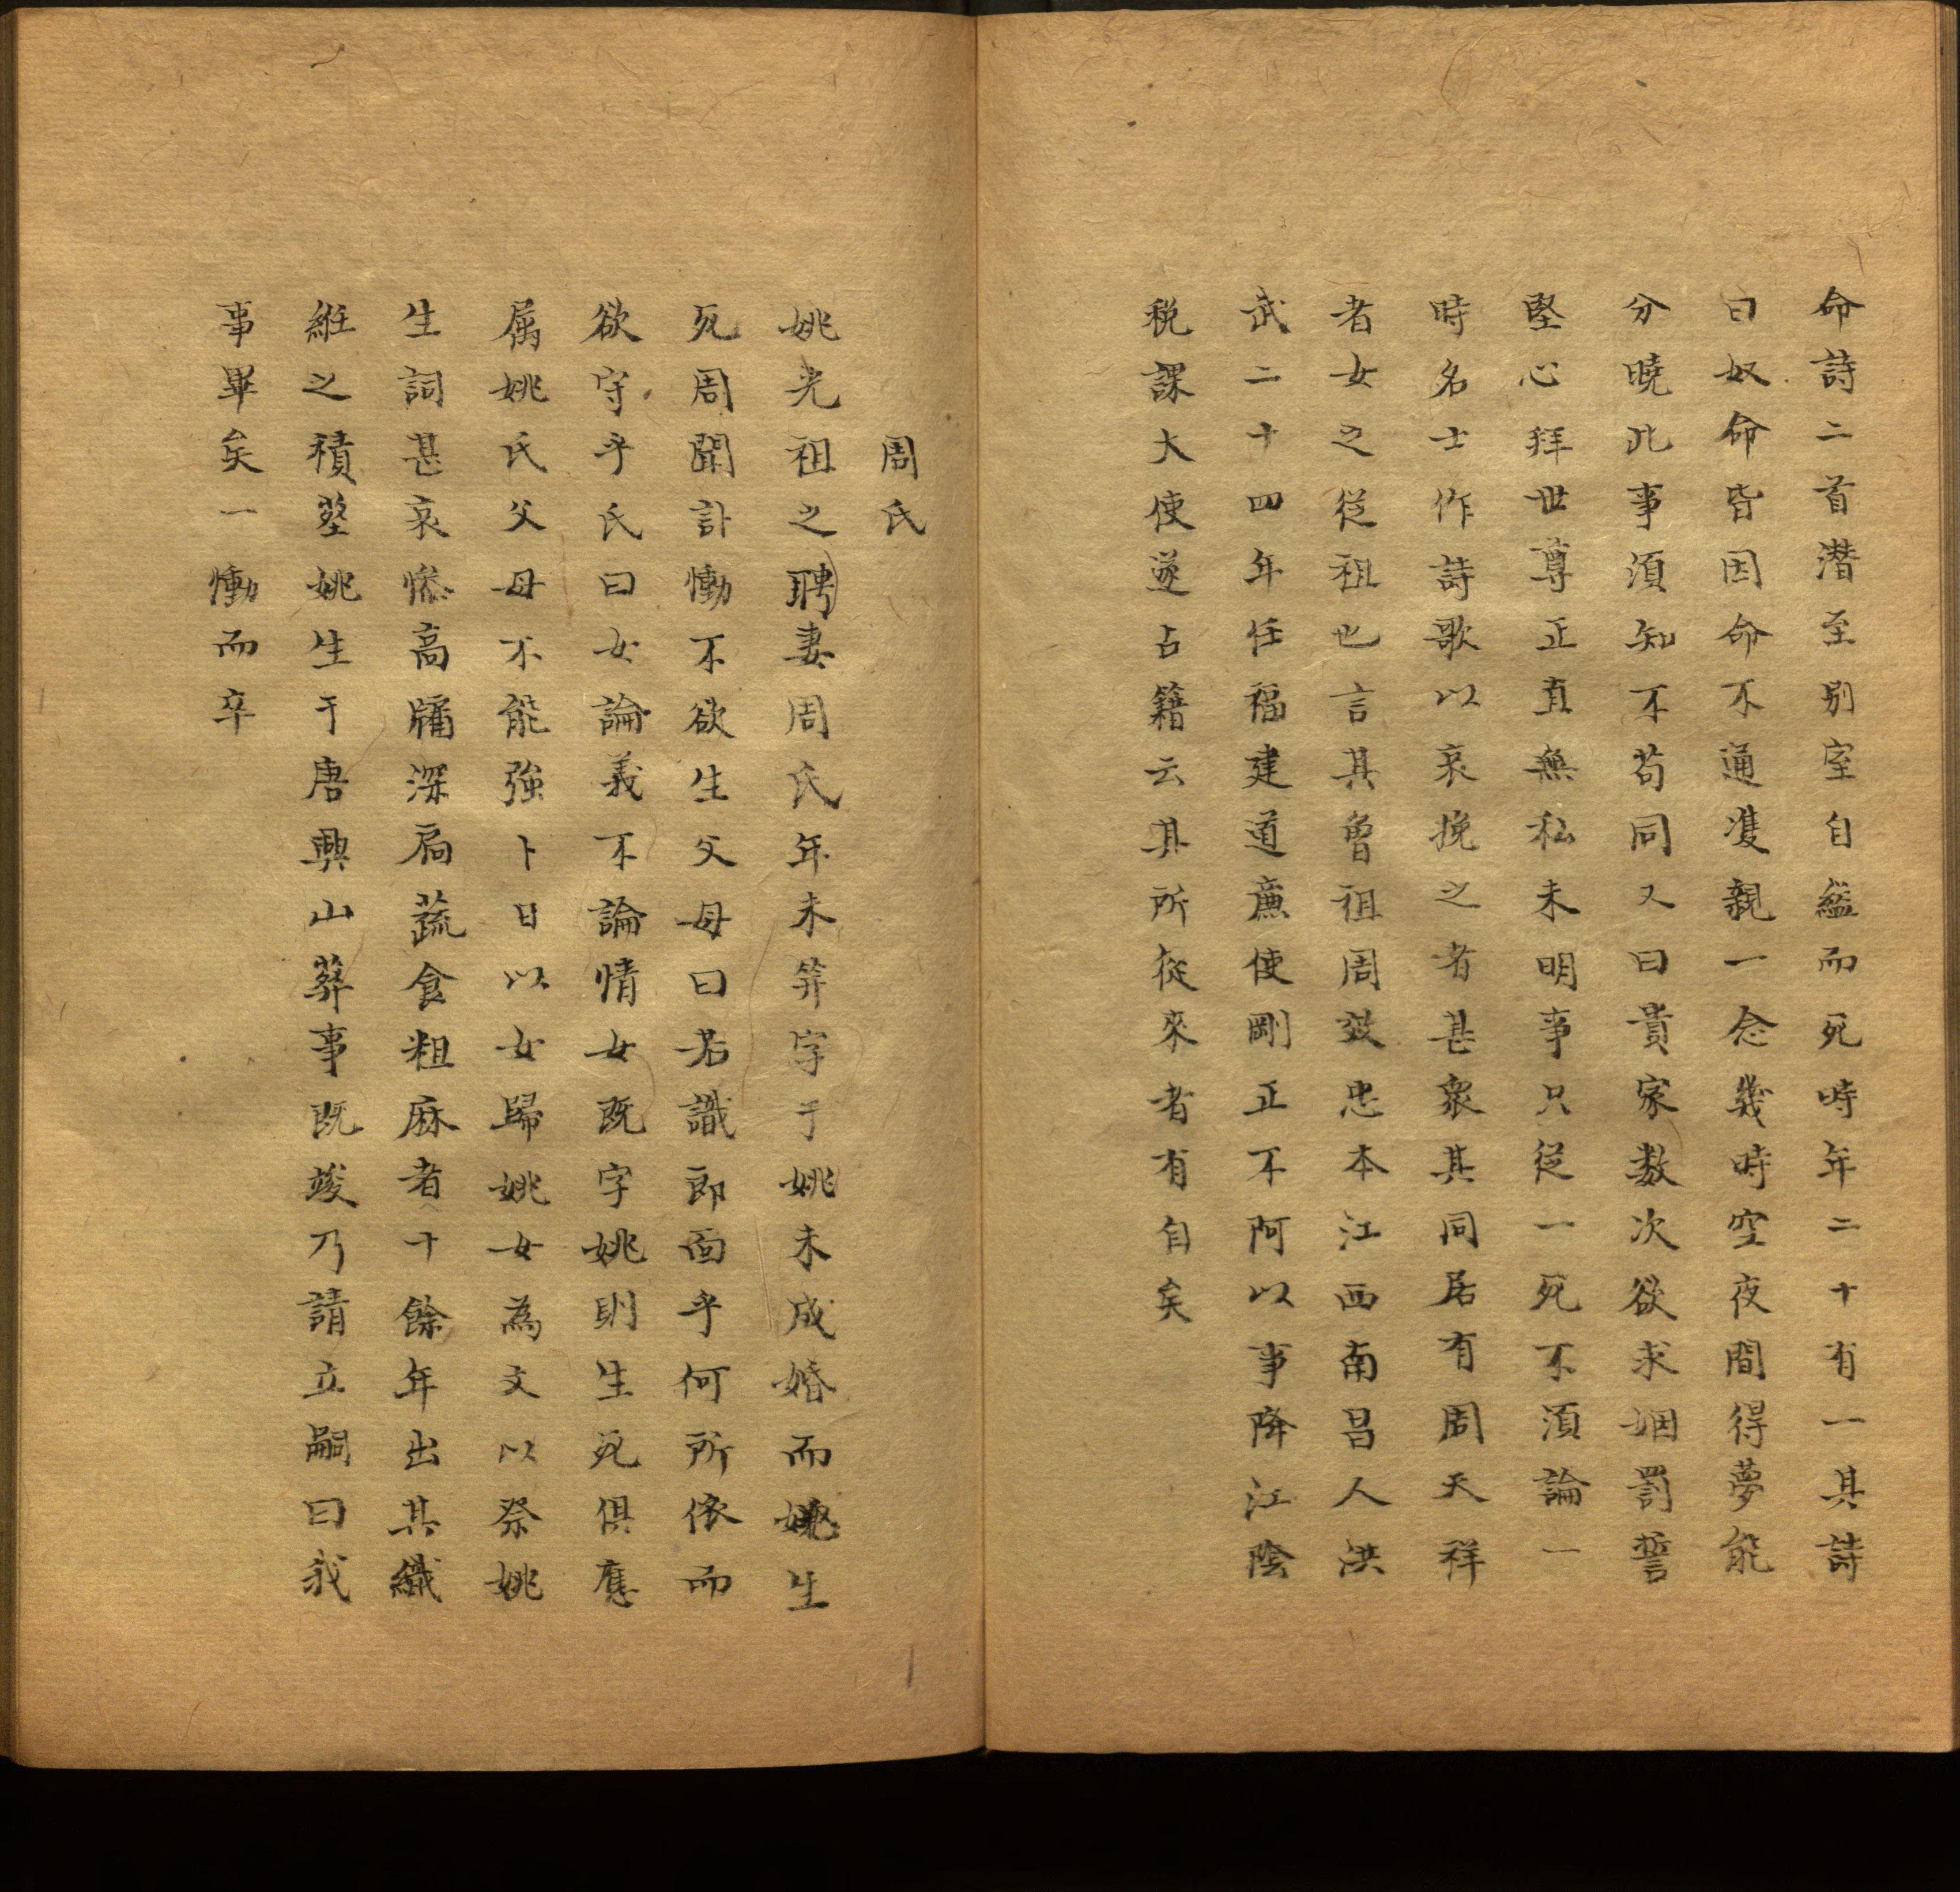 命詩二首潛至別室自縊而死時年二十有一其詩
曰奴命皆因命不通𨾏親一念幾時空夜間得夢能
分曉此事須知不苟同又曰貴家数次欲求姻罰誓
堅心拜世尊正直無私未明事只從一死不須論一
時名士作詩歌以哀挽之者甚衆其同居有周天祥
者女之從祖也言其曾祖周效忠本江西南昌人洪
武二十四年任福建道亷使剛正不阿以事降江陰
税課大使遂占籍云其所從來者有自矣
周氏
姚光祖之聘妻周氏年未笄字于姚未成婚而姚生
死周聞訃慟不欲生父母曰若識郎面乎何所依而
欲守乎氏曰女論義不論情女既字姚則生死俱應
屬姚氏父母不能強卜日以女歸姚女為文以祭姚
生詞甚哀慘高牖深扃蔬食粗麻者十餘年出其織
絍之積塟姚生于唐興山葬事既竣乃請立嗣曰我
事畢矣一慟而卒